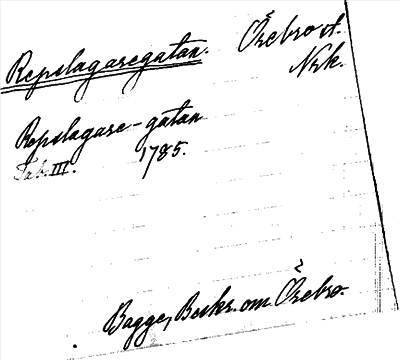 Repslagaregatan. Örebro st.
Nrk.
Repslagare-gatan
Tab. III. 1785.
Bagge, Beskr. om Örebro.